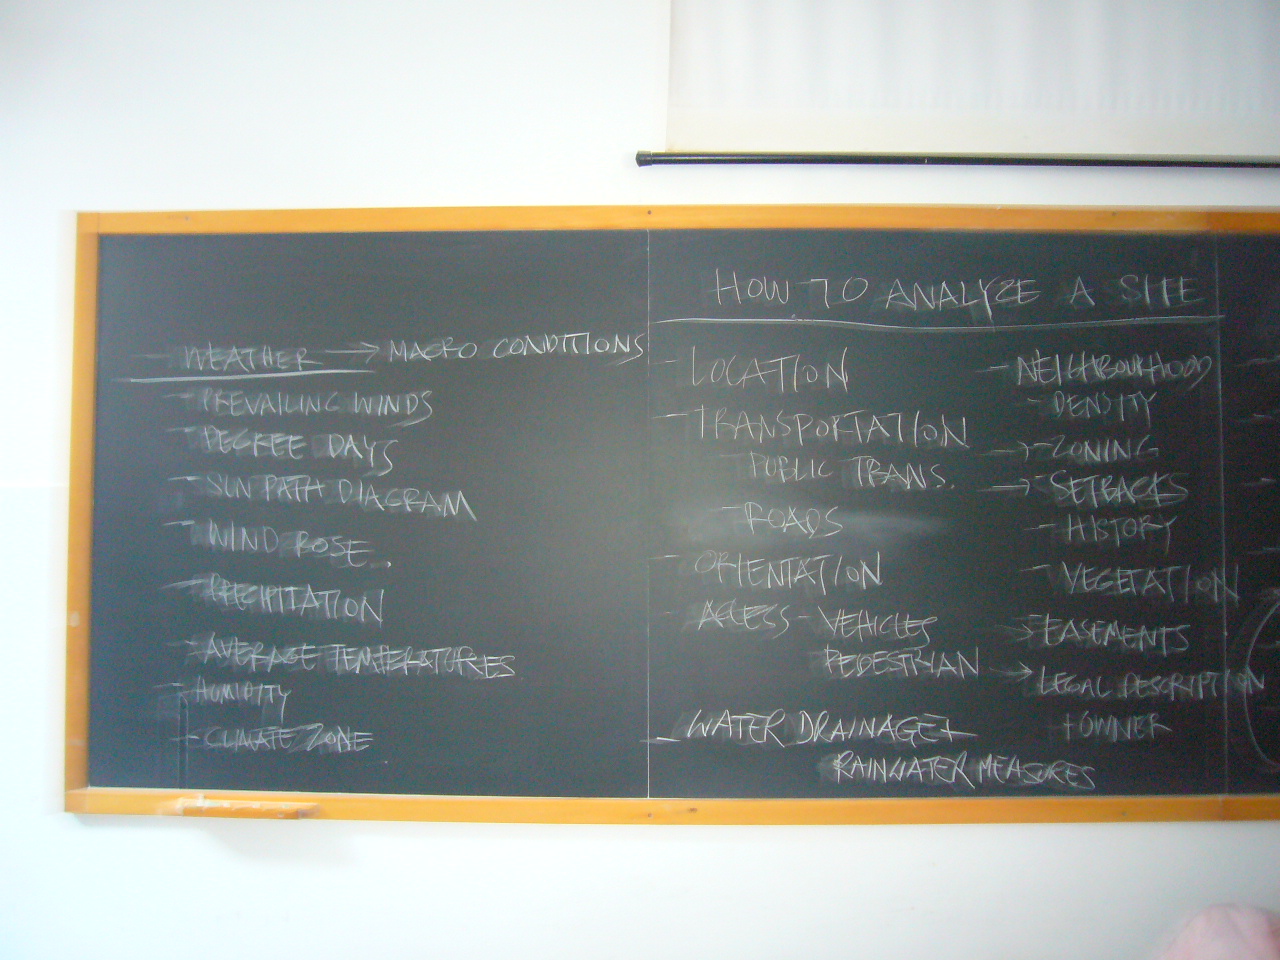 HOW TO ANALYZE A SITE
- WEATHER → MACRO CONDITIONS
- PREVAILING WINDS
- DEGREE DAYS
- SUN PATH DIAGRAM
- WIND ROSE.
- PRECIPITATION
- AVERAGE TEMPERATURES
- HUMIDITY
- CLIMATE ZONE
- LOCATION
- TRANSPORTATION
PUBLIC TRANS.
- ROADS
- ORIENTATION
- ACCESS - VEHICLES
PEDESTRIAN
- WATER DRAINAGE +
RAINWATER MEASURES
- NEIGHBOURHOOD
- DENSITY
→ - ZONING
→ - SETBACKS
- HISTORY
- VEGETATION
→ - EASEMENTS
→ LEGAL DESCRIPTION
+ OWNER